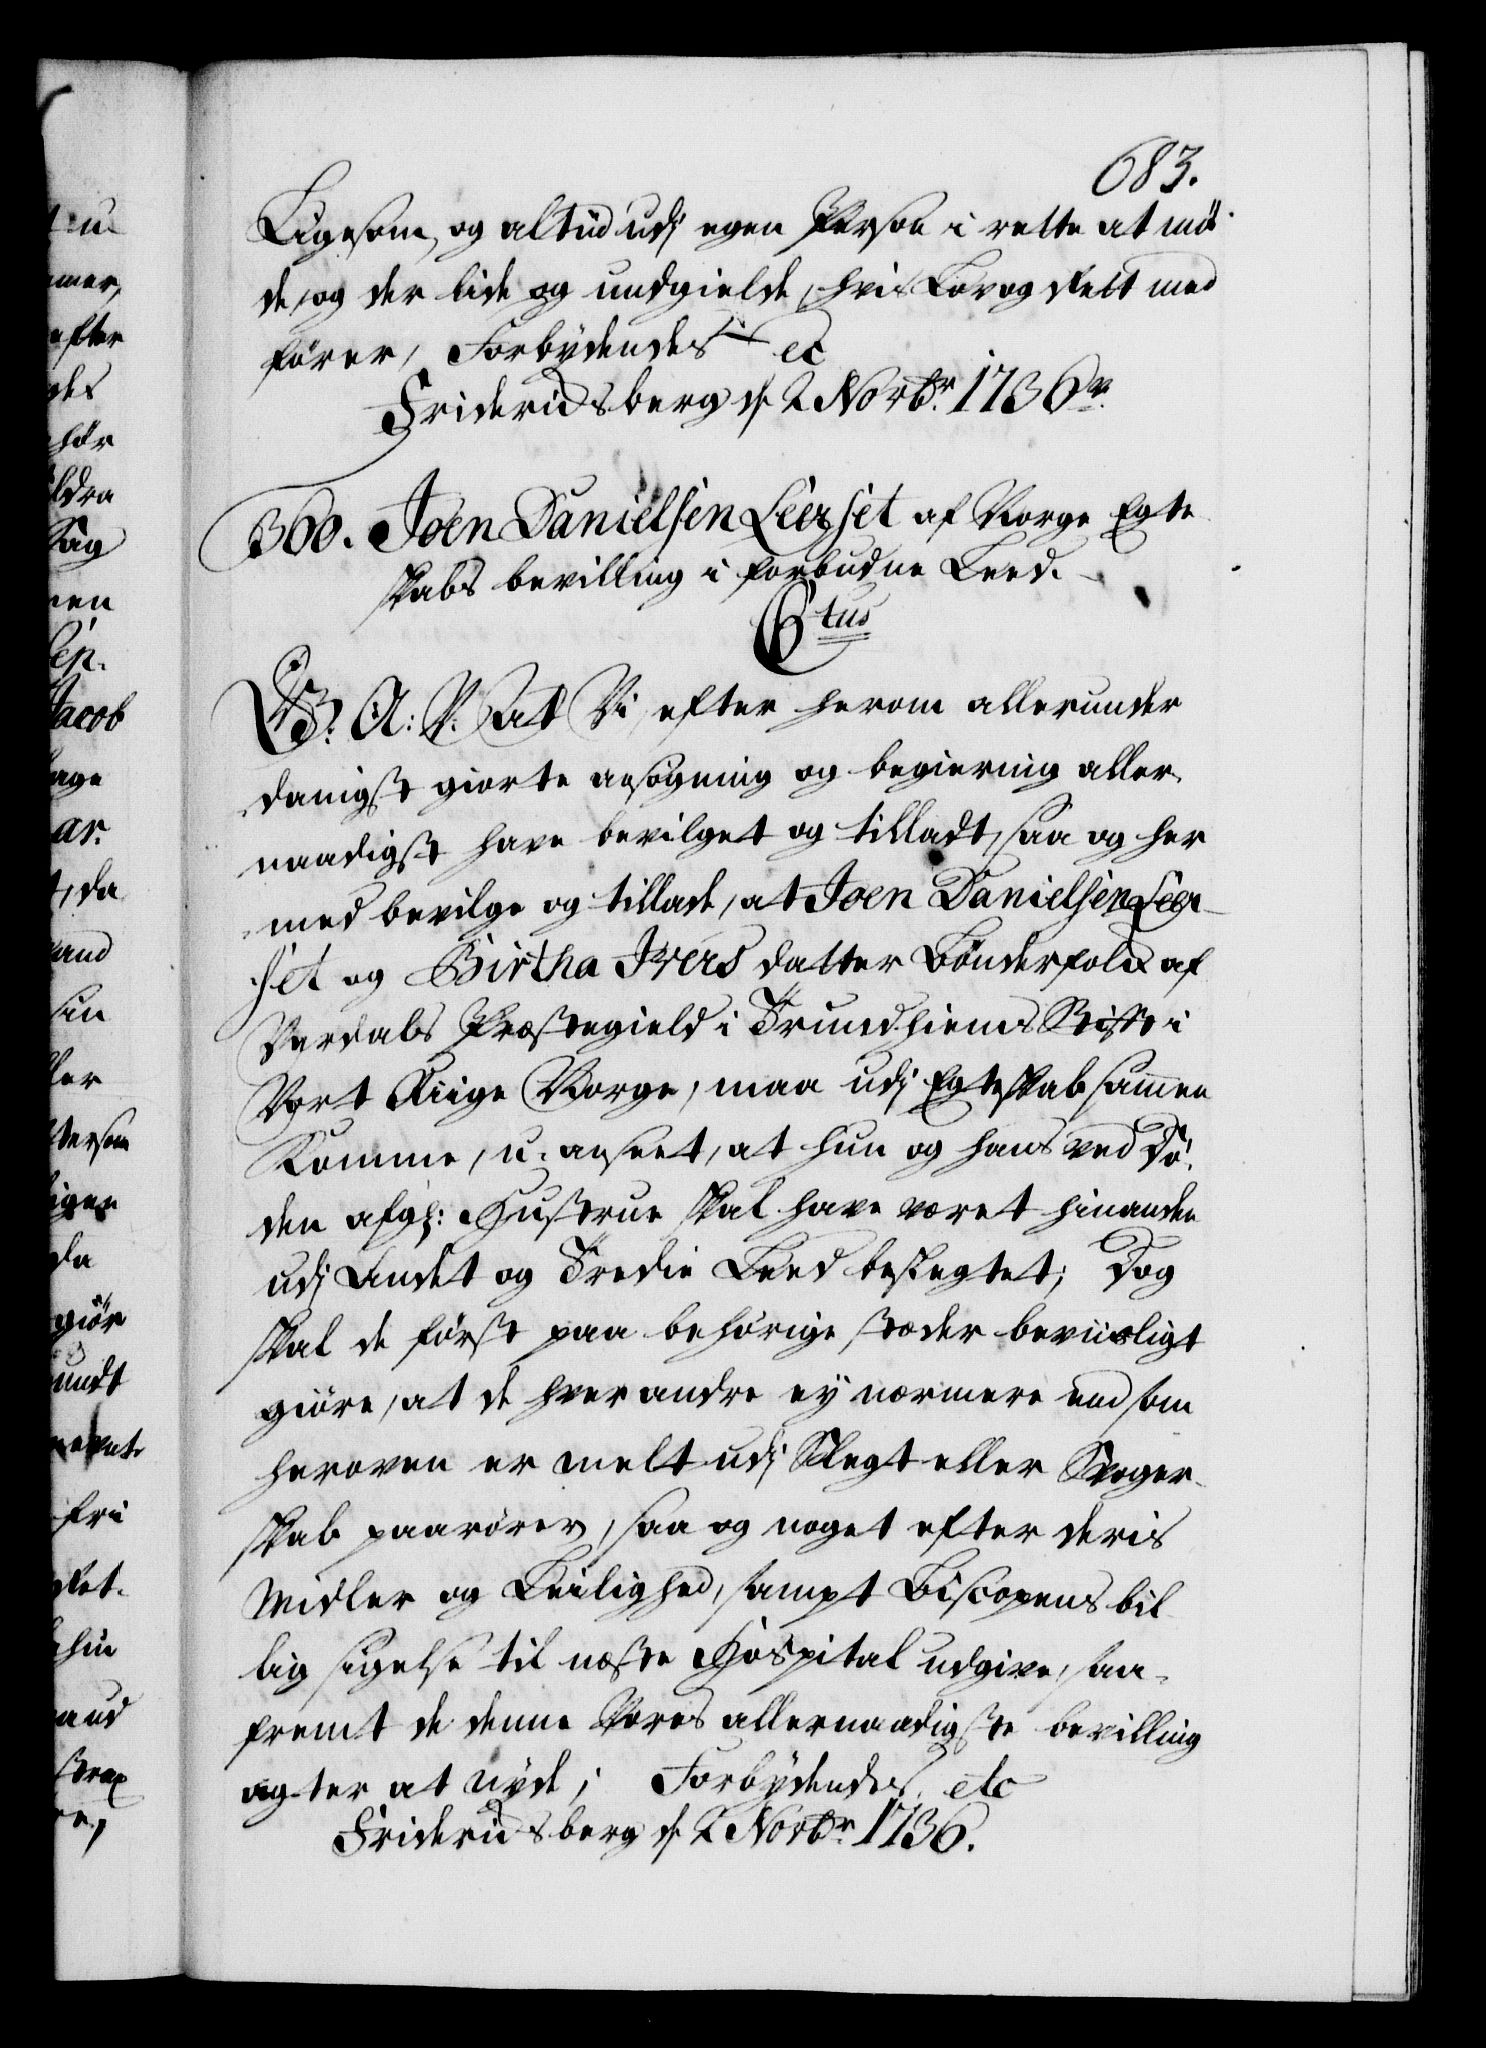 683.
Ligesom og altiid udj egen Person i rette at mø¬
de, og der lide og undgielde, hvis Lov og Rett med
fører, Forbydendes ec
Friderichsberg d. 2 Novbr. 1736 
360. Joen Danielsen Leerset af Norge Egte
skabs bevilling i forbudne Leed.
Gtus
V: A: V: At Vi, efter herom allerunder
danigst giorte ansøgning og begiering aller¬
naadigst have bevilget og tilladt, saa og her
med bevilge og tillade, at Joen Danielsen Leer¬
set og Birtha Ivers datter Bønderfolck af
Verdals Præstegield i Trundhiems Stift i
Vort Riige Norge, maa udj Egteskab sammen
Komme, u-anseet, at hun og hans ved Dø¬
den afgl: Hustrue skal have været hinanden
udj Andet og Tredie Leed beslegtet; Dog
skal de først paa behørige stæder beviisligt
giøre, at de hverandre ey nærmere end som
heroven er melt udj Slegt eller Svoger¬
skab paarører, saa og noget efter deris
Midler og Leilighed, sampt Biscopens bil¬
lig sigelse til næste Hospital udgive, saa¬
fremt de denne Vores allernaadigste bevilling
agter at nyde; Forbydendes etc
Friderichsberg d. 2 Novbr 1736.